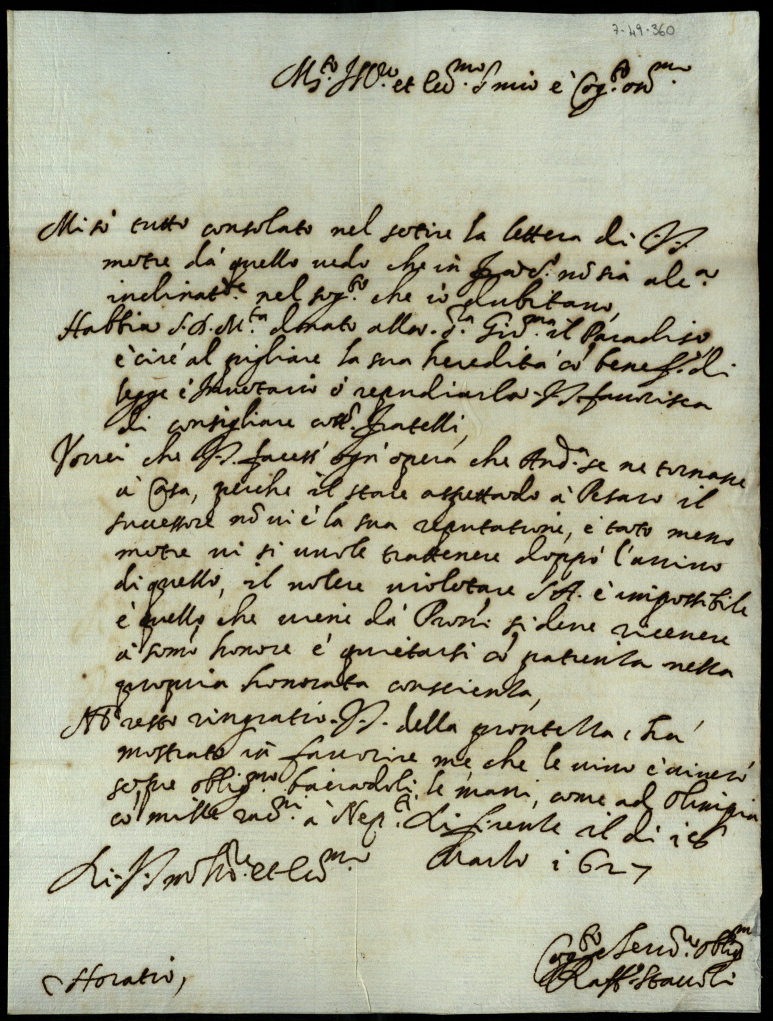 7-49-360
M.to Ill.re et Ecc.mo S.r mio è Cog.to oss.mo
Mi sò tutto consolato nel sētire la lettera di V.S.
mētre dà quello vedo che in nō sia
nel sog.to che iò dubitavo,
Habbia S.D.M.tà donato alla Gir.ma il Paradiso
è circ'al pigliare la sua heredità cō benef.o di
legge è Inventario ò repudiarla V.S. favorisca
di consigliare cot.i fratelli,
Vorrei che V.S. facess' ogn' opera che And.a se ne tornasse
à Casa, perche il stare aspettādo à Pesaro il
successore nō vi è la sua reputatione, è tāto meno
mētre vi si vuole trattenere doppò l'arrivo
di quello, il volere violētare S.A. è impossibile
è quello che viene dà si deve ricevere
à somō honore è quietarsi cō patienza nella
propria honorata conscienza,
Nel resto ringratio V.S. della prontezza, hà
mostrato in favorire me che le vivo è viverò
sēpre oblig.mo baciādoli le mani, come ad Olimpia
cō mille à Nep.ti Di Firenze il dì 18
Marzo 1627
Di V.S. molto Ill.re et Ecc.ma
Cog.to e Ser.re oblig.mo
Raff.o Stauoli
Horatio,